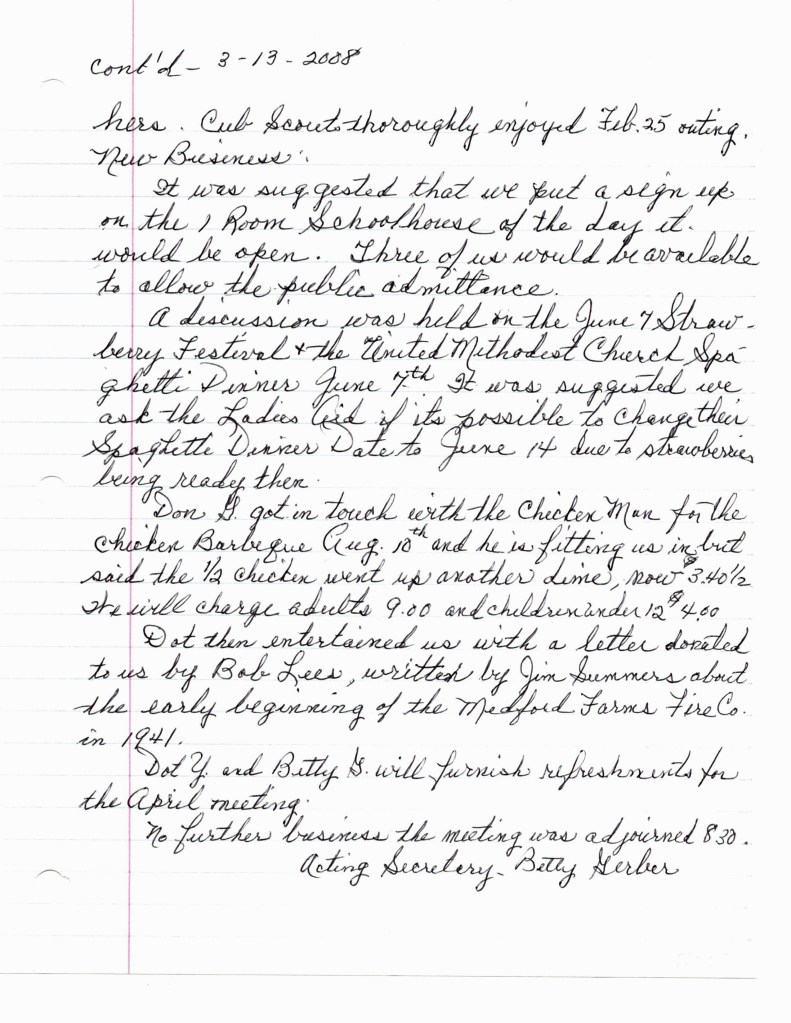 Cont'd - 3-13-2008
hers. Cub Scouts thoroughly enjoyed Feb. 25 outing.
New Business:
It was suggested that we put a sign up
on the 1 Room Schoolhouse of the day it
would be open. Three of us would be available
to allow the public admittance.
A discussion was held on the June 7 Straw-
berry Festival + the United Methodist Church Spa-
ghetti Dinner June 7th. It was suggested we
ask the Ladies Aid if its possible to change their
Spaghetti Dinner Date to June 14 due to strawberries
being ready then.
Don G. got in touch with the Chicken Man for the
Chicken Barbeque Aug. 10th and he is fitting us in but
said the 1/2 chicken went up another dime, now $3.40 1/2
We will charge adults 9.00 and children under 12 $4.00
Dot then entertained us with a letter donated
to us by Bob Lees, written by Jim Summers about
the early beginning of the Medford Farms Fire Co.
in 1941.
Dot Y. and Betty G. will furnish refreshments for
the April meeting.
No further business the meeting was adjourned 8:30.
Acting Secretary - Betty Gerber